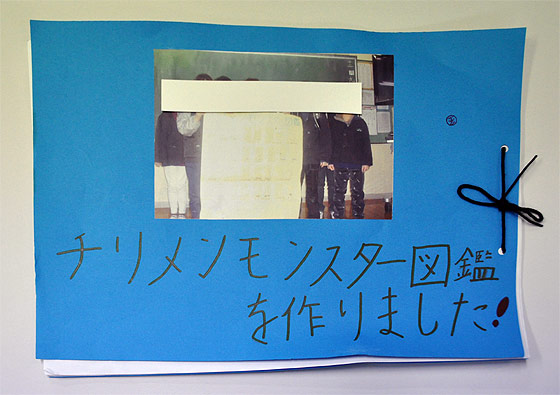 チリメンモンスター図鑑
を作りました!